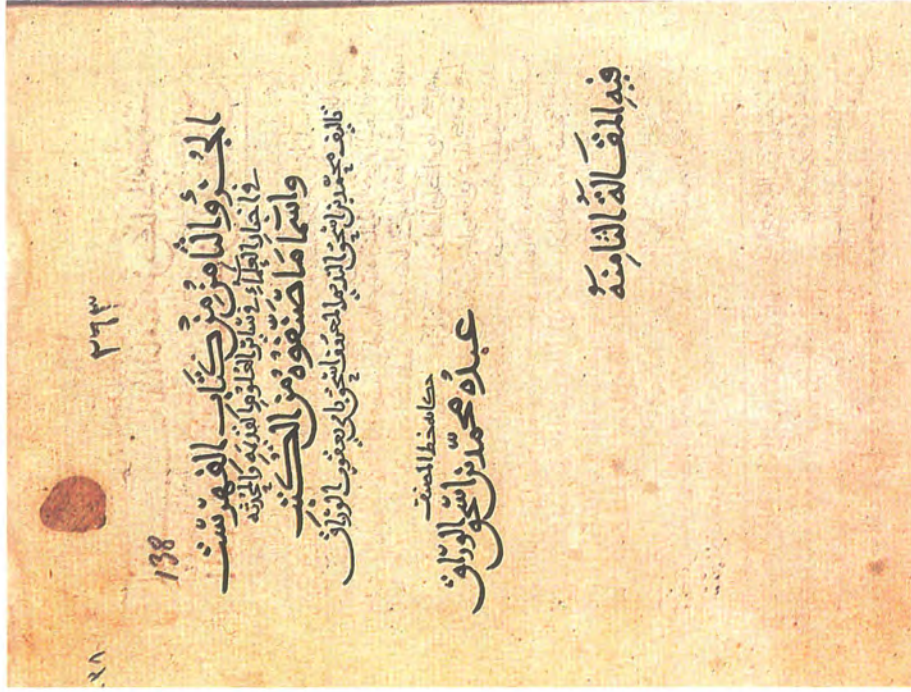 ٢٦٣
138
الجزؤ الثامن من كتاب الفهرست
في اخبار العلماء في سائر العلوم القديمة والمحدثة
واسما ما صنفوه من الكتب
تاليف محمد بن اسحق النديم المعروف اسحق بابي يعقوب الوراق
حكاية خط المصنف
عبده محمد بن اسحق الوراق
فيه المقالة الثامنة